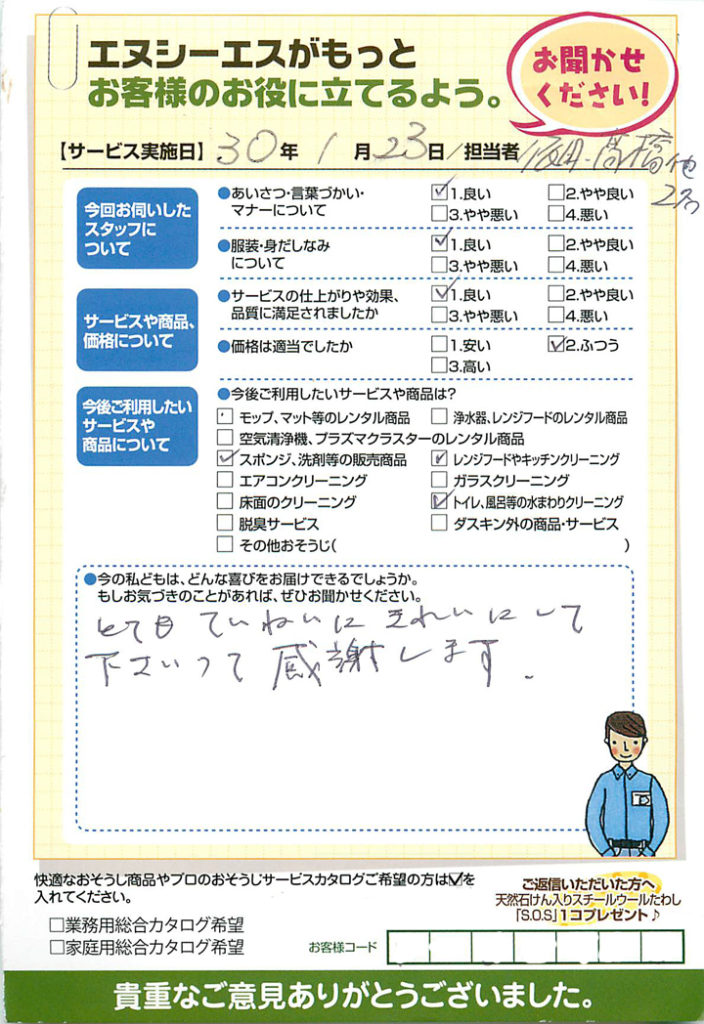 エヌシーエスがもっと
お客様のお役に立てるよう。
お聞かせ
ください!
【サービス実施日】30年 1月23日/担当者 飯田・高橋他
2名
今回お伺いした
スタッフに
ついて
●あいさつ・言葉づかい・
マナーについて
☑1.良い □2.やや良い
□3.やや悪い □4.悪い
●服装・身だしなみ
について
☑1.良い □2.やや良い
□3.やや悪い □4.悪い
サービスや商品、
価格について
●サービスの仕上がりや効果、
品質に満足されましたか
☑1.良い □2.やや良い
□3.やや悪い □4.悪い
●価格は適当でしたか
□1.安い ☑2.ふつう
□3.高い
今後ご利用したい
サービスや
商品について
●今後ご利用したいサービスや商品は?
□モップ、マット等のレンタル商品 □浄水器、レンジフードのレンタル商品
□空気清浄機、プラズマクラスターのレンタル商品
☑スポンジ、洗剤等の販売商品 ☑レンジフードやキッチンクリーニング
□エアコンクリーニング □ガラスクリーニング
□床面のクリーニング ☑トイレ、風呂等の水まわりクリーニング
□脱臭サービス □ダスキン外の商品・サービス
□その他おそうじ( )
●今の私どもは、どんな喜びをお届けできるでしょうか。
もしお気づきのことがあれば、ぜひお聞かせください。
とても ていねいに きれいにして
下さいって 感謝します.
快適なおそうじ商品やプロのおそうじサービスカタログご希望の方は☑を
入れてください。
□業務用総合カタログ希望
□家庭用総合カタログ希望
お客様コード
ご返信いただいた方へ
天然石けん入りスチールウールたわし
「S.O.S」1コプレゼント♪
貴重なご意見ありがとうございました。